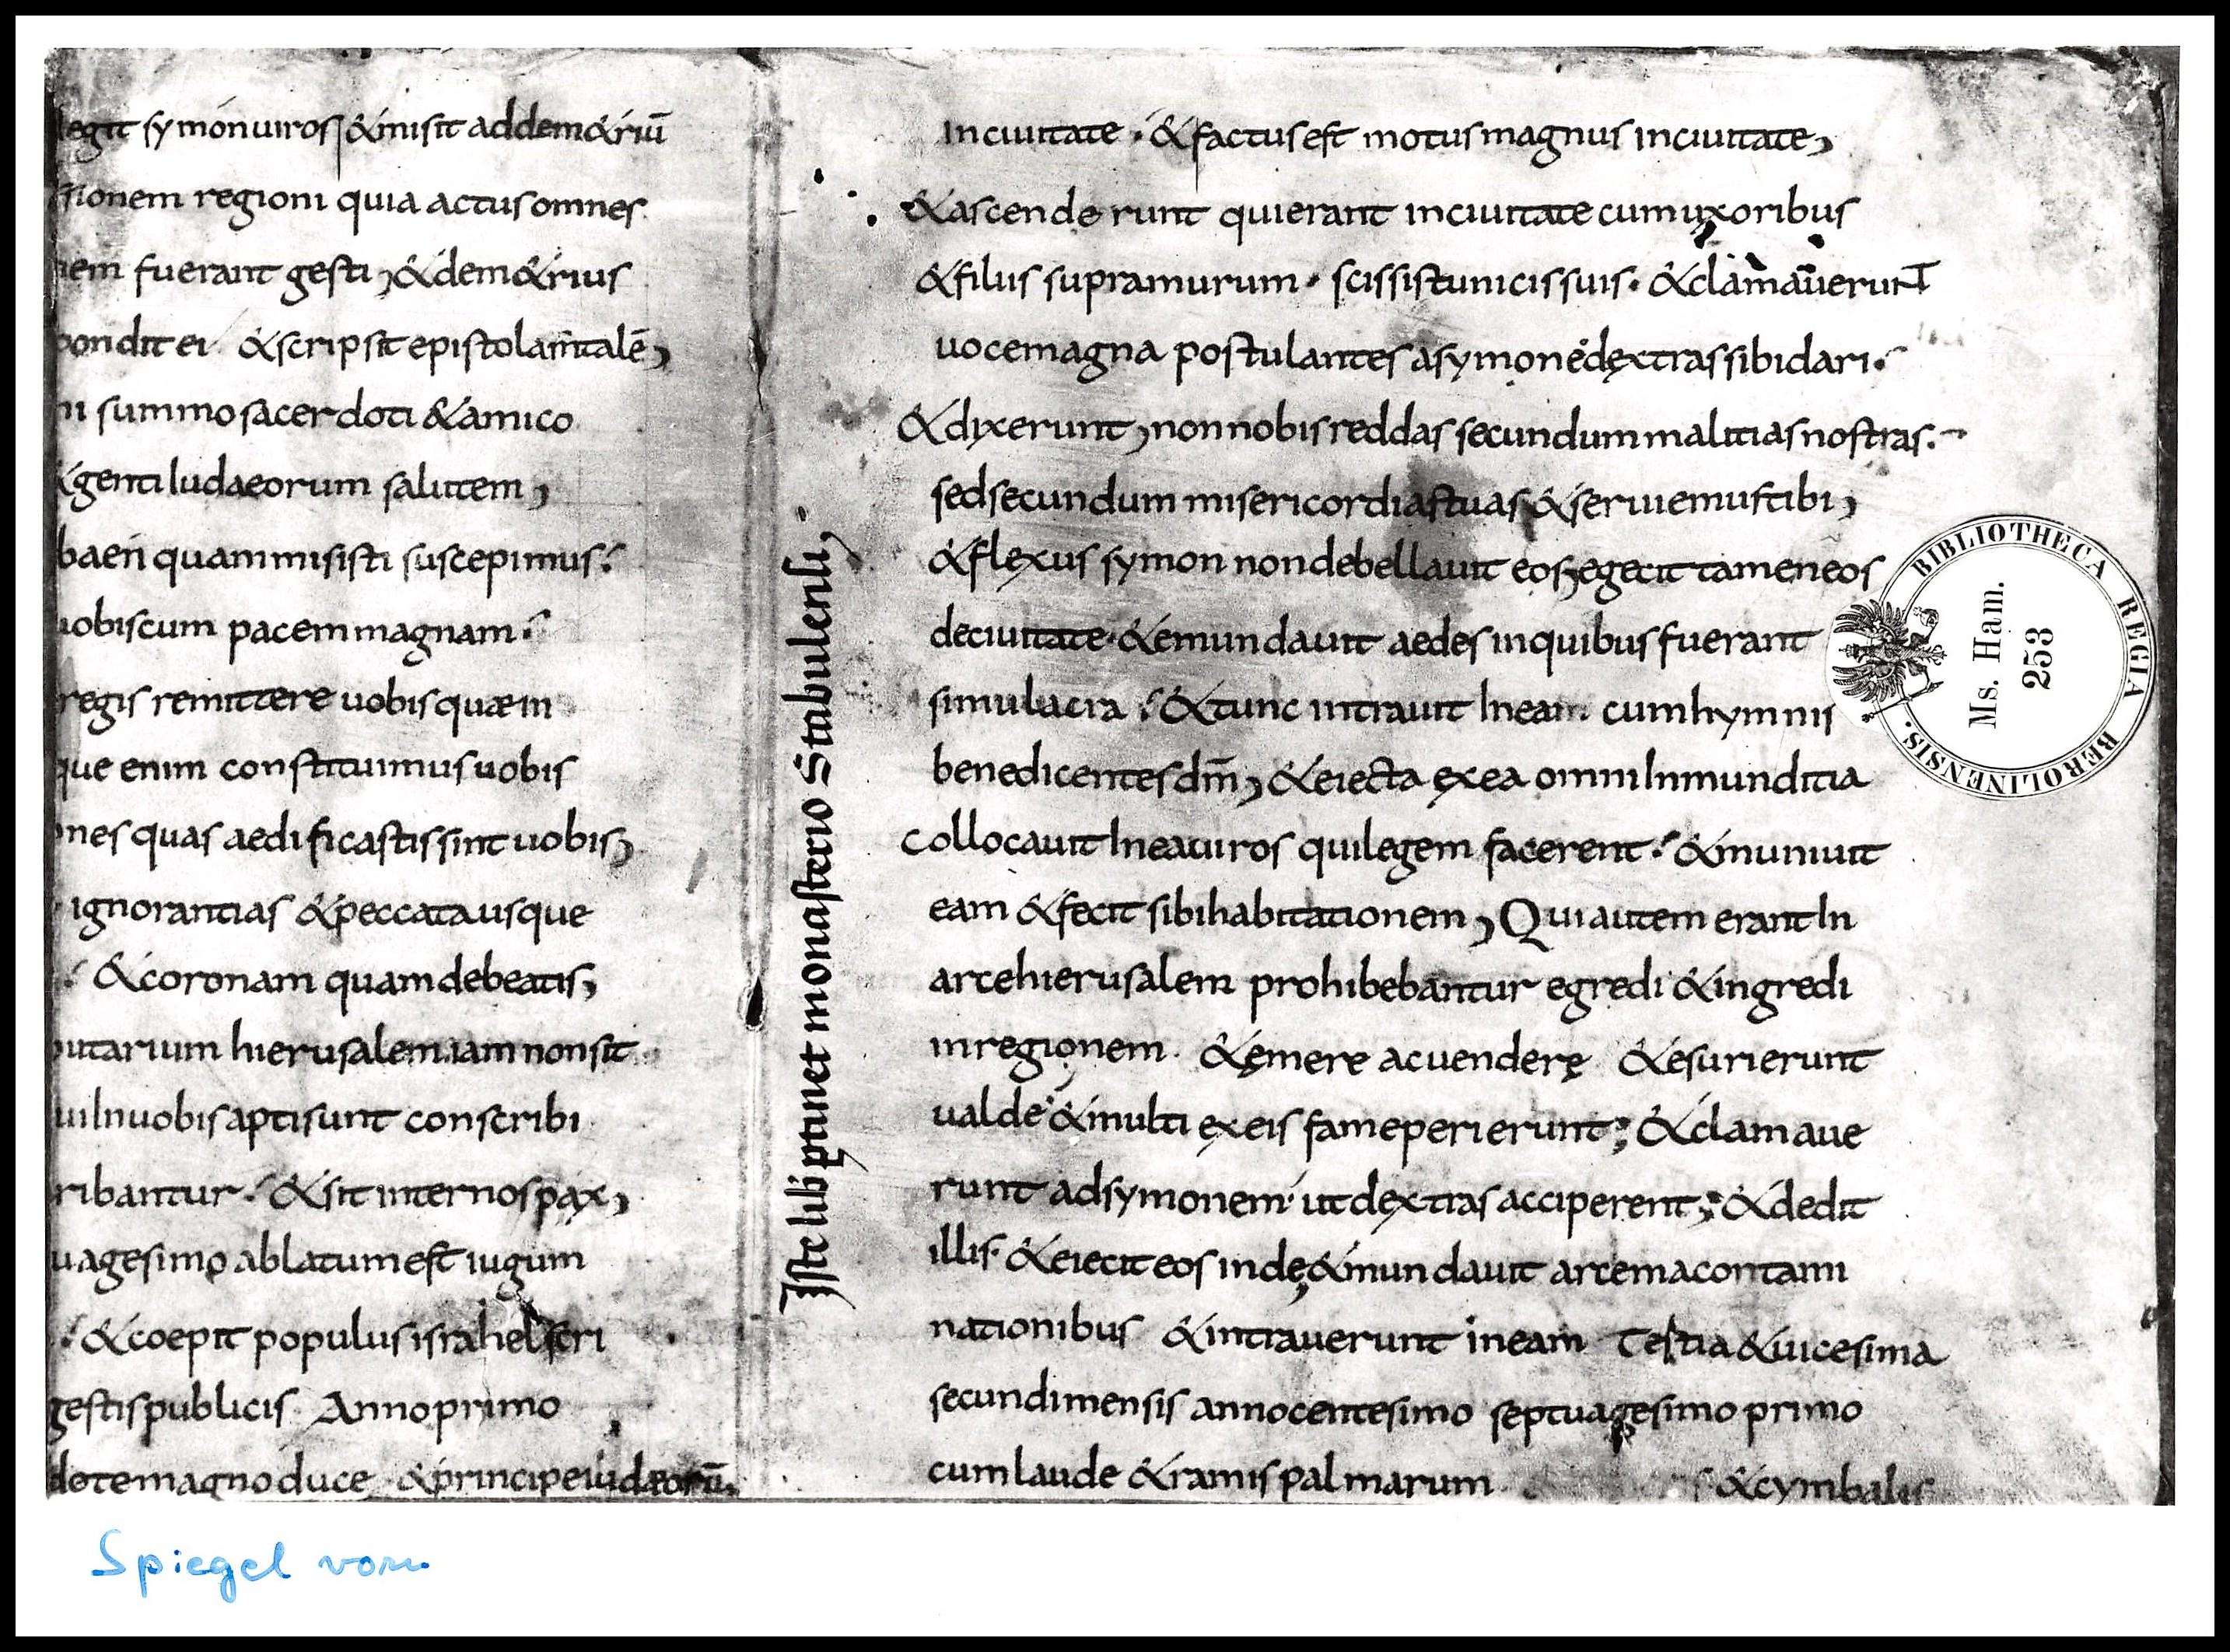 legit symon uiros & misit ad dem&riū
stionem regioni quia actus omnes
nem fuerant gesti, & dem&rius
pondit ei & scripsit epistolam talē,
ni summo sacerdoti & amico
& genti Iudaeorum salutem,
baen quam misisti suscepimus.
uobiscum pacem magnam.
regis remittere uobis quæm
que enim constituimus uobis
ones quas aedificastis sint uobis,
ignorantias & peccata usque
& coronam quam debeatis,
butarium hierusalem iam non sit
ui In uobis apti sunt conscribi
ribantur. & sit inter nos pax,
uagesimo ablatum est iugum
& coepit populus israhel scri
gestis publicis Anno primo
dote magno duce & principe iudæorū,
Iste lib ptinet monasterio Stabulensi,
in ciuitate. & factus est motus magnus in ciuitate,
& ascenderunt qui erant in ciuitate cum uxoribus
& filiis supra murum. scissis tunicis suis. & clamauerunt
uoce magna postulantes a symone dextras sibi dari.
& dixerunt, non nobis reddas secundum malitias nostras.
sed secundum misericordias tuas & seruiemus tibi,
& flexus symon non debellauit eos, egecit tamen eos
de ciuitate. & emundauit aedes in quibus fuerant
simulacra. & tunc intrauit In eam cum hymnis
benedicentes dm̄, & eiecta ex ea omni Inmunditia
collocauit In ea uiros qui legem facerent. & muniuit
eam & fecit sibi habitationem, Qui autem erant In
arce hierusalem prohibebantur egredi & ingredi
in regionem. & emere ac uendere & esurierunt
ualde & multi ex eis fame perierunt; & clamaue
runt ad symonem ut dextras acciperent; & dedit
illis. & eiecit eos inde, & mundauit arcem a contami
nationibus & intrauerunt in eam Tertia & uicesima
secundi mensis anno centesimo septuagesimo primo
cum laude & ramis palmarum & cymbalis
BIBLIOTHECA REGIA BEROLINENSIS.
Ms. Ham.
253
Spiegel vorn